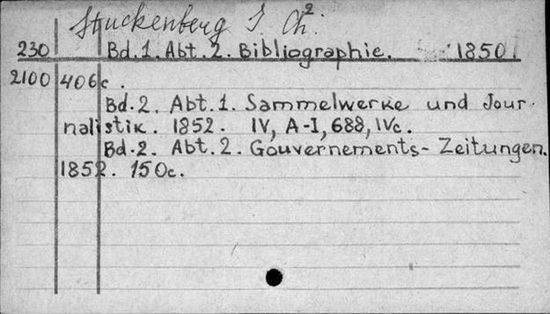 Stuckenberg J. Ch. 2
230 Bd.1. Abt.2. Bibliographie. 1850.
2100 406c.
Bd.2. Abt.1. Sammelwerke und Jour-
nalistik. 1852. IV, A-I, 688, IVc.
Bd.2. Abt.2. Gouvernements-Zeitungen.
1852. 150c.